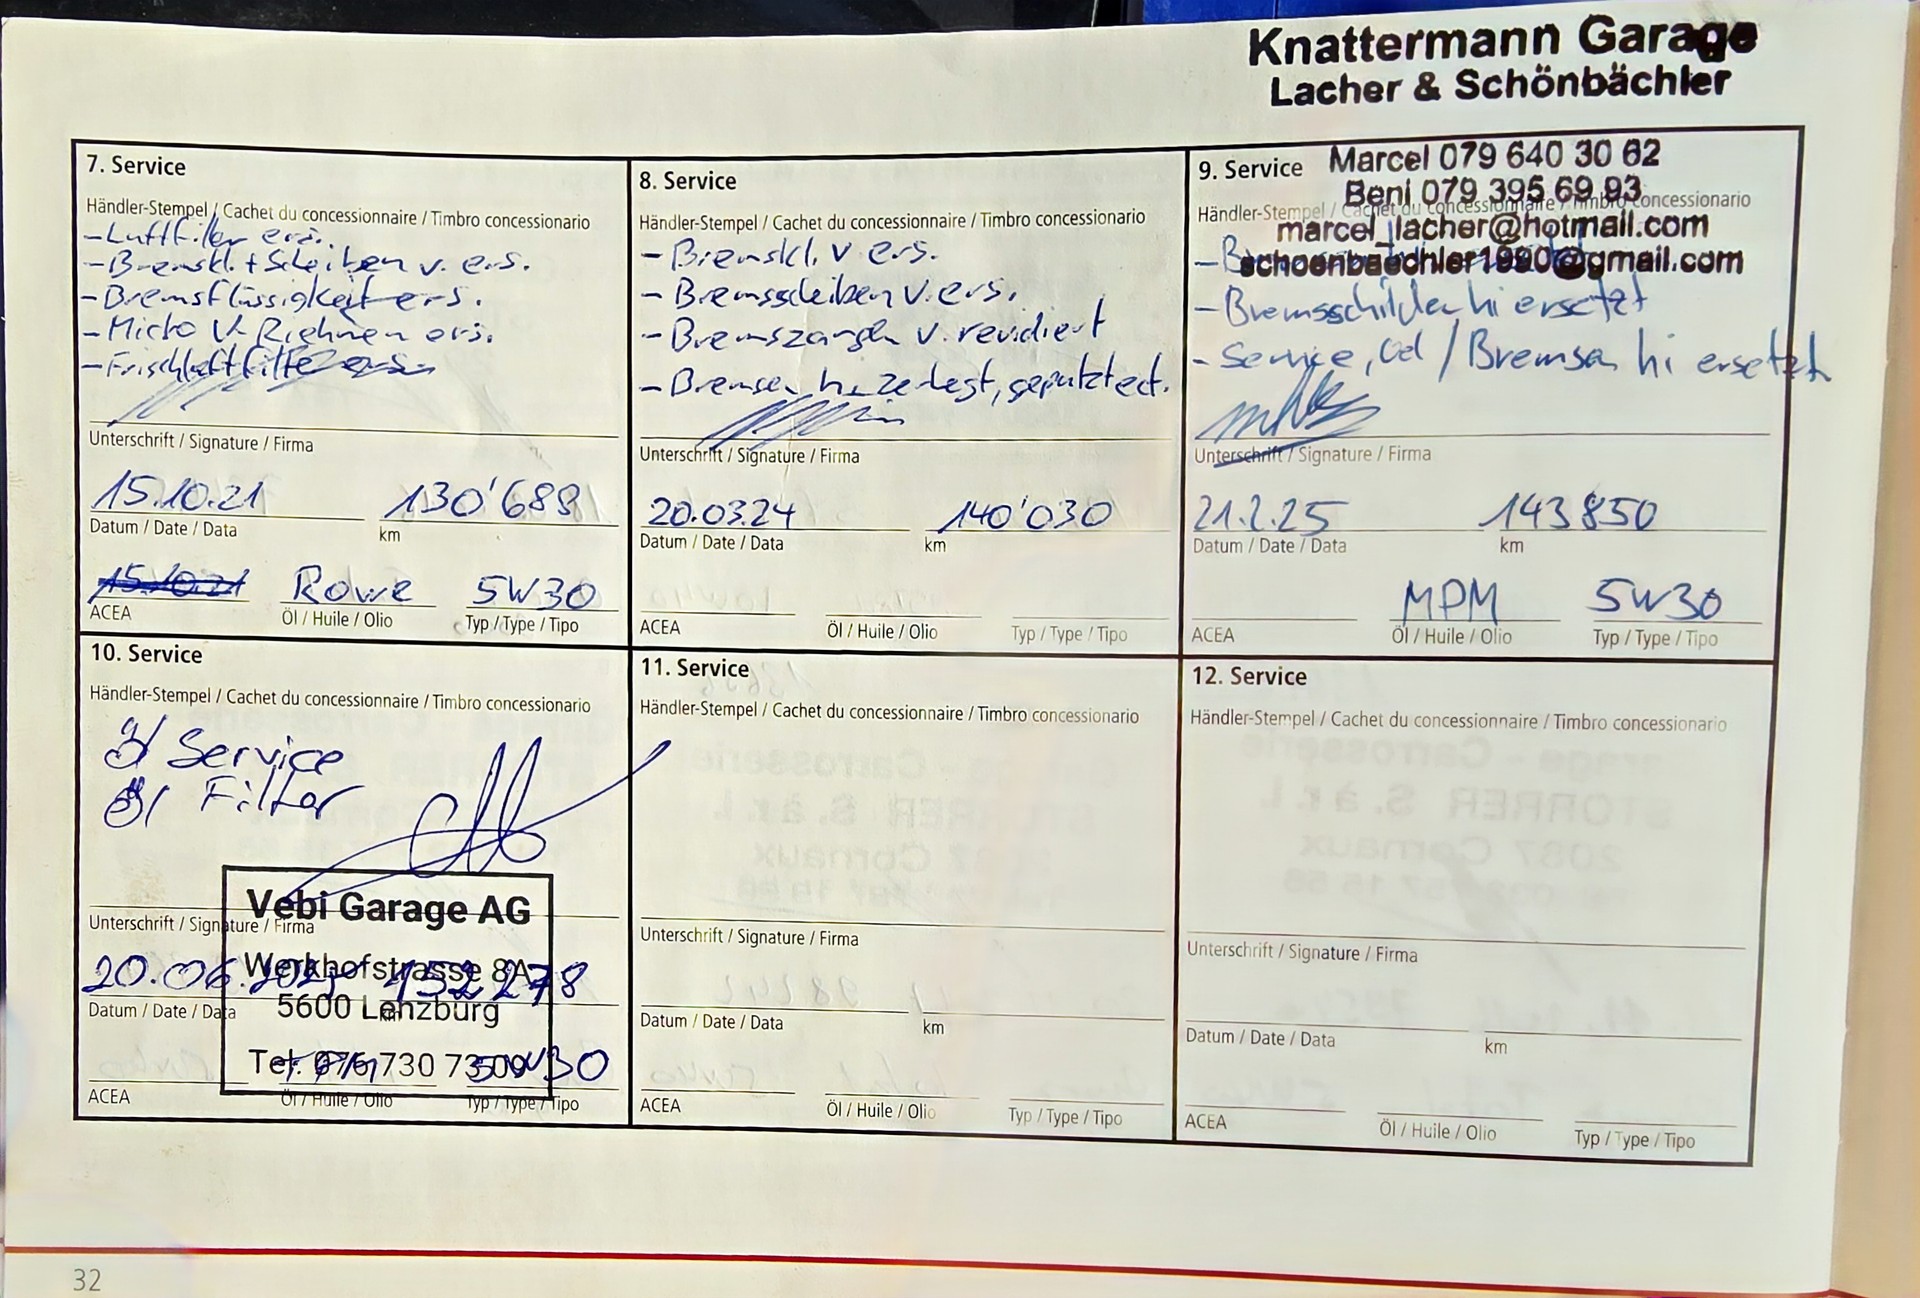 Knattermann Garage
Lacher & Schönbächler
7. Service
Händler-Stempel / Cachet du concessionnaire / Timbro concessionario
- Luftfilter ers.
- Bremskl. + Scheiben v. ers.
- Bremsflüssigkeit ers.
- Micro V-Riehmen ers.
- Frischluftfilter ers.
Unterschrift / Signature / Firma
15.10.21 130'688
Datum / Date / Data km
15.10.21 Rowe 5W30
ACEA Öl / Huile / Olio Typ / Type / Tipo
8. Service
Händler-Stempel / Cachet du concessionnaire / Timbro concessionario
- Bremskl. v ers.
- Bremsscheiben v. ers.
- Bremszangen v. revidiert
- Bremsen h. zerlegt, geputzt ect.
Unterschrift / Signature / Firma
20.03.24 140'030
Datum / Date / Data km
ACEA Öl / Huile / Olio Typ / Type / Tipo
9. Service
Marcel 079 640 30 62
Beni 079 395 69 93
Händler-Stempel / Cachet du concessionnaire / Timbro concessionario
marcel_lacher@hotmail.com
schoenbaechler1990@gmail.com
- Bremsschilder hi ersetzt
- Service, Oel / Bremsen hi ersetzt
Unterschrift / Signature / Firma
21.2.25 143850
Datum / Date / Data km
MPM 5W30
ACEA Öl / Huile / Olio Typ / Type / Tipo
10. Service
Händler-Stempel / Cachet du concessionnaire / Timbro concessionario
Öl Service
Öl Filter
Vebi Garage AG
Unterschrift / Signature / Firma
Werkhofstrasse 8A
20.06.2025 152278
5600 Lenzburg
Datum / Date / Data km
Tel. 076 730 73 09
5W30
ACEA Öl / Huile / Olio Typ / Type / Tipo
11. Service
Händler-Stempel / Cachet du concessionnaire / Timbro concessionario
Unterschrift / Signature / Firma
Datum / Date / Data km
ACEA Öl / Huile / Olio Typ / Type / Tipo
12. Service
Händler-Stempel / Cachet du concessionnaire / Timbro concessionario
Unterschrift / Signature / Firma
Datum / Date / Data km
ACEA Öl / Huile / Olio Typ / Type / Tipo
32